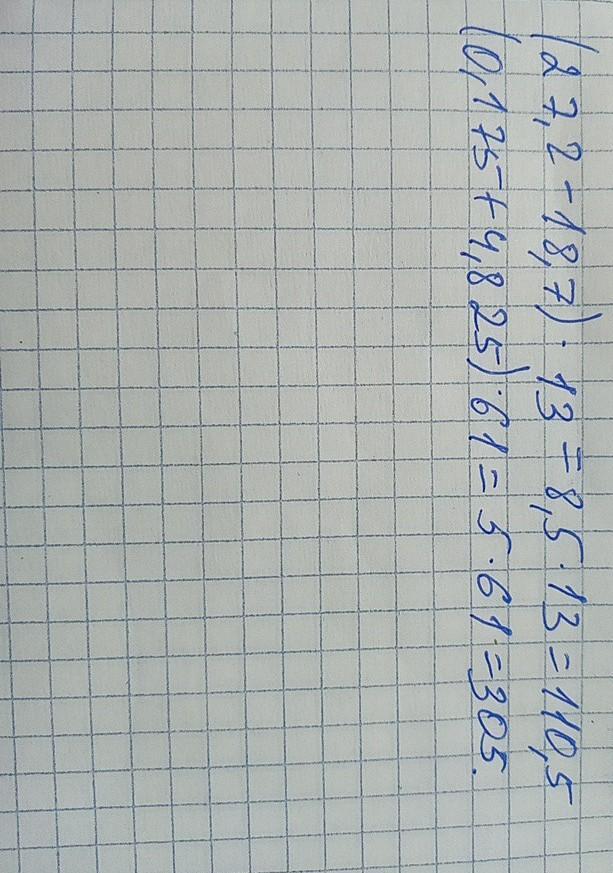 (27,2 - 18,7) · 13 = 8,5 · 13 = 110,5
(0,175 + 4,825) · 61 = 5 · 61 = 305.